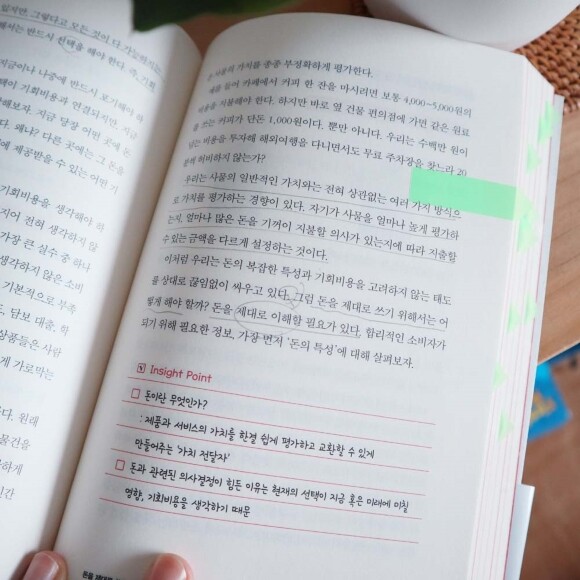 있지만 그렇다고 모든 것이 다 가능하지는
해서는 반드시 선택을 해야 한다. 즉, 기회
지금이나 나중에 반드시 포기해야 하
택이 기회비용과 연결되지만, 지금
각해보자. 지금 당장 어떤 곳에 돈
다. 왜냐? 다른 곳에는 그 돈을
에 제공받을 수 있는 어떤 기
기회비용을 생각해야 하
지어 전혀 생각하지 않
가장 큰 실수 중 하나
생각하지 않은 소비
기본적으로 부족
도, 담보 대출, 학
상품들은 사람
게 가로막는
다. 원래
물건을
하게
인간
사물의 가치를 종종 부정확하게 평가한다.
예를 들어 카페에서 커피 한 잔을 마시려면 보통 4,000~5,000원의
비용을 지불해야 한다. 하지만 바로 옆 건물 편의점에 가면 같은 원료
를 쓰는 커피가 단돈 1,000원이다. 뿐만 아니다. 우리는 수백만 원이
넘는 비용을 투자해 해외여행을 다니면서도 무료 주차장을 찾느라 20
분씩 허비하지 않는가?
우리는 사물의 일반적인 가치와는 전혀 상관없는 여러 가지 방식으
로 가치를 평가하는 경향이 있다. 자기가 사물을 얼마나 높게 평가하
는지, 얼마나 많은 돈을 기꺼이 지불할 의사가 있는지에 따라 지출할
수 있는 금액을 다르게 설정하는 것이다.
이처럼 우리는 돈의 복잡한 특성과 기회비용을 고려하지 않는 태도
를 상대로 끊임없이 싸우고 있다. 그럼 돈을 제대로 쓰기 위해서는 어
떻게 해야 할까? 돈을 제대로 이해할 필요가 있다. 합리적인 소비자가
되기 위해 필요한 정보, 가장 먼저 ‘돈의 특성’에 대해 살펴보자.
Insight Point
돈이란 무엇인가?
: 제품과 서비스의 가치를 한결 쉽게 평가하고 교환할 수 있게
만들어주는 ‘가치 전달자’
돈과 관련된 의사결정이 힘든 이유는 현재의 선택이 지금 혹은 미래에 미칠
영향, 기회비용을 생각하기 때문
돈을 제대로